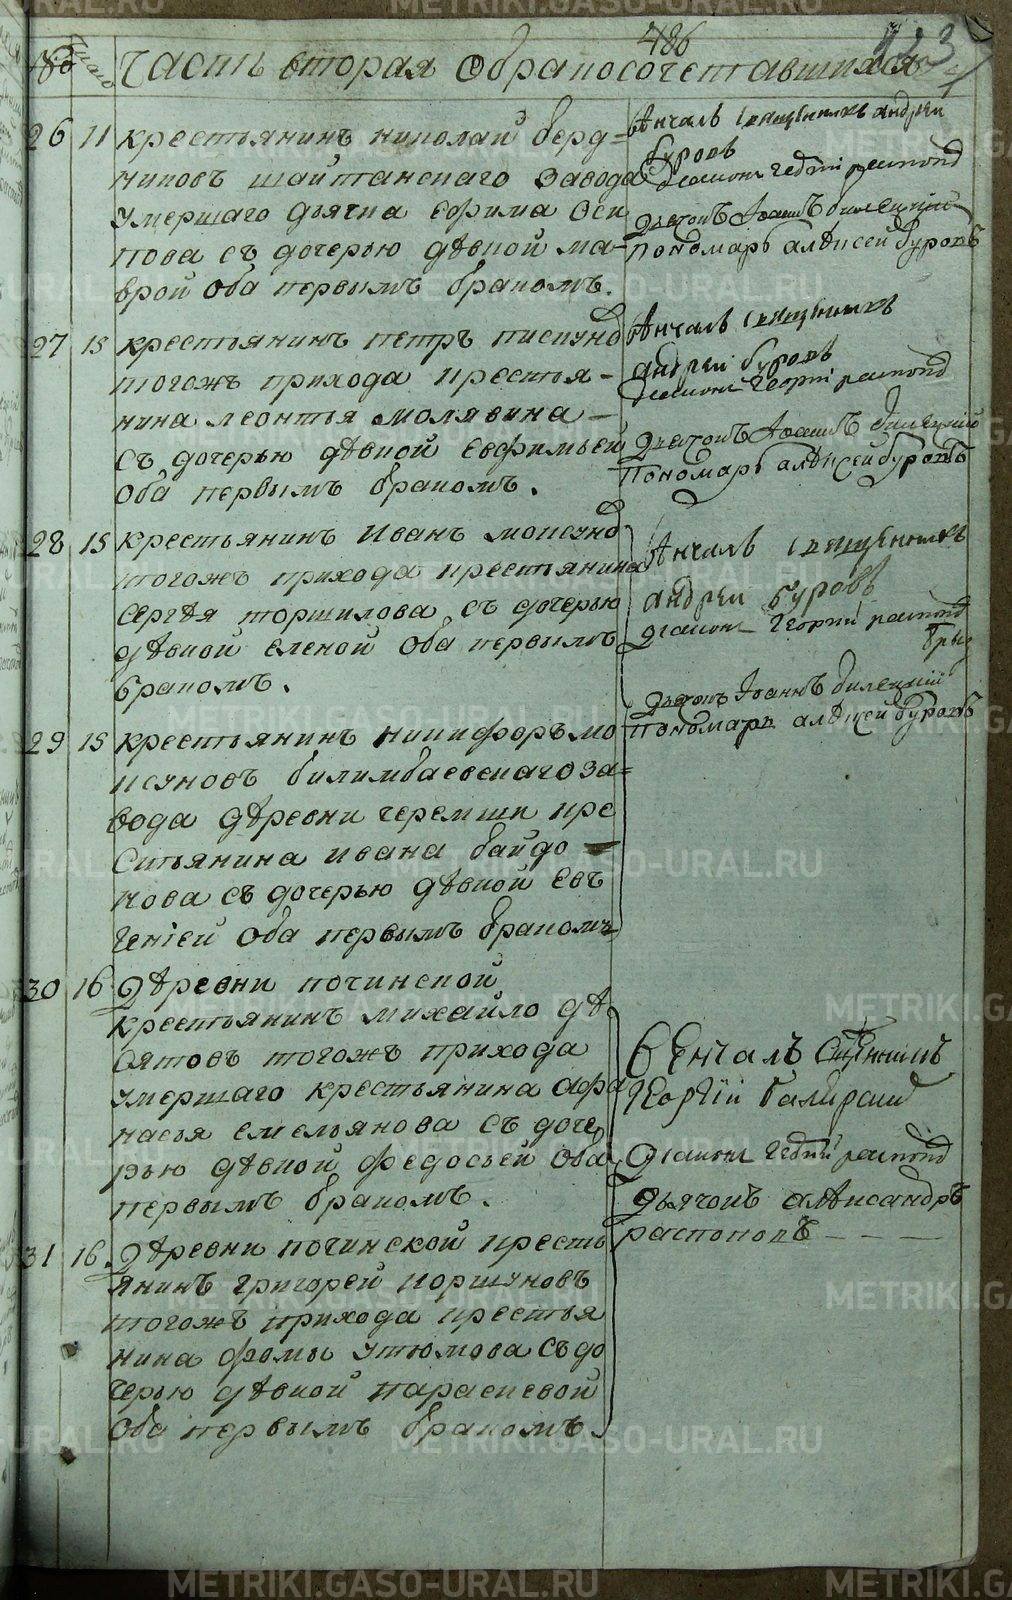 486
123
№ Число Часть вторая о бракосочетавшихся
26 11 крестьянинъ николай берд-
никовъ шайтанскаго завода
умершаго дьячка ефима оси
пова съ дочерью дѣвкой ма-
врой оба первымъ бракомъ.
вѣнчалъ священникъ андрей
Буровъ
диаконъ георгій
дьячокъ Иоаннъ билецкий
пономарь алѣксей Буровъ
27 15 крестьянинъ петръ пискуно
тогожъ прихода крестья-
нина леонтья молявина
съ дочерью дѣвкой евфимьей
оба первымъ бракомъ.
вѣнчалъ священникъ
андрей буровъ
диаконъ георгий
дьячокъ Иоаннъ билецкий
пономарь алѣксей буровъ
28 15 крестьянинъ Иванъ мокѣуно
тогожъ прихода крестьянина
сергѣя торшилова съ дочерью
дѣвкой еленой оба первымъ
бракомъ.
вѣнчалъ священникъ
андрей буровъ
диаконъ Георгий
дьячокъ Иоаннъ билецкий
пономарь алѣксей буровъ
29 15 крестьянинъ никифоръ мо
исуновъ билимбаевскаго за=
вода дѣревни черемши кре
стьянина ивана байдо
нова съ дочерью дѣвкой евъ
геніей оба первымъ бракомъ
30 16 дѣревни починской
крестьянинъ михайло дѣ
вятовъ тогожъ прихода
умершаго крестьянина афа
насья емельянова съ доче
рью дѣвкой федосьей оба
первымъ бракомъ.
вѣнчалъ священникъ
Георгій
диаконъ георгий
дьячокъ алѣксандръ
распоповъ
31 16. дѣревни починской кресть
янинъ григорей коршуновъ
тогожъ прихода крестья
нина фомы утюмова съ до
черью дѣвкой параскевой
оба первымъ бракомъ.
METRIKI.GASO-URAL.RU